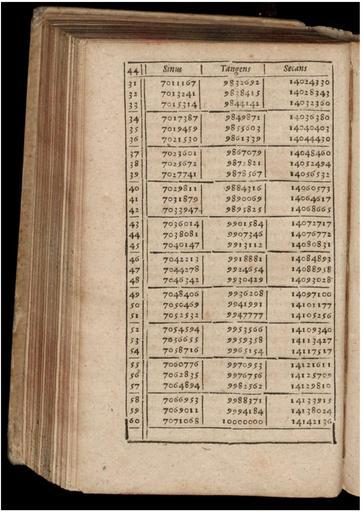 44 Sinus Tangens Secans
31 7011167 9832692 14024330
32 7013241 9838415 14028343
33 7015314 9844141 14032360
34 7017387 9849871 14036380
35 7019459 9855603 14040403
36 7021530 9861339 14044430
37 7023601 9867079 14048460
38 7025672 9872821 14052494
39 7027741 9878567 14056532
40 7029811 9884316 14060573
41 7031879 9890069 14064617
42 70339474 9895825 14068665
43 7036014 9901584 14072717
44 7038081 9907346 14076772
45 7040147 9913112 14080831
46 7042213 9918881 14084893
47 7044278 9924654 14088958
48 7046342 9930429 14093028
49 7048406 9936208 14097100
50 7050469 9941991 14101177
51 7052532 9947777 14105256
52 7054594 9953566 14109340
53 7056655 9959358 14113427
54 7058716 9965154 14117517
55 7060776 9970953 14121611
56 7062835 9976756 14125709
57 7064894 9982562 14129810
58 7066953 9988371 14133915
59 7069011 9994184 14138024
60 7071068 10000000 14142136